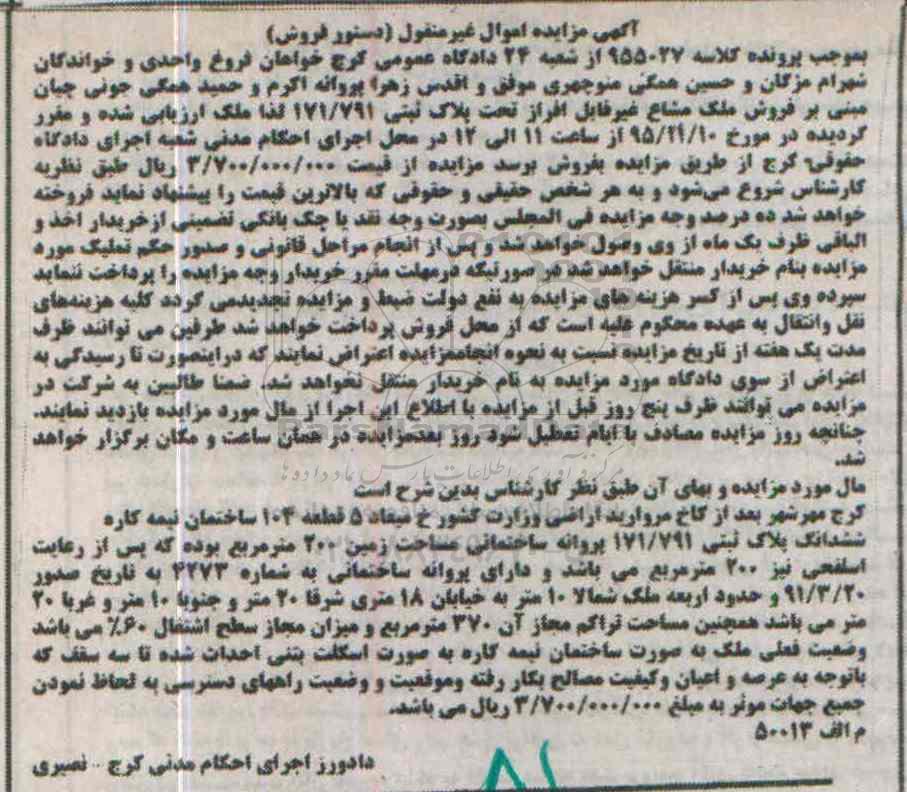 آگهی مزایده اموال غیرمنقول (دستور فروش)
بموجب پرونده کلاسه ۹۵۵۰۲۷ از شعبه ۲۴ دادگاه عمومی کرج خواهان فروغ واحدی و خواندگان
شهرام مژگان و حسین همگی منوچهری موفق و اقدس زهرا پروانه اکرم و حمید همگی جونی چیان
مبنی بر فروش ملک مشاع غیرقابل افراز تحت پلاک ثبتی ۱۷۱/۷۹۱ لذا ملک ارزیابی شده و مقرر
گردیده در مورخ ۹۵/۱۱/۱۰ از ساعت ۱۱ الی ۱۲ در محل اجرای احکام مدنی شعبه اجرای دادگاه
حقوقی کرج از طریق مزایده بفروش برسد مزایده از قیمت ۳/۷۰۰/۰۰۰/۰۰۰ ریال طبق نظریه
کارشناس شروع می‌شود و به هر شخص حقیقی و حقوقی که بالاترین قیمت را پیشنهاد نماید فروخته
خواهد شد ده درصد وجه مزایده فی المجلس بصورت وجه نقد یا چک بانکی تضمینی ازخریدار اخذ و
الباقی ظرف یک ماه از وی وصول خواهد شد و پس از انجام مراحل قانونی و صدور حکم تملیک مورد
مزایده بنام خریدار منتقل خواهد شد در صورتیکه درمهلت مقرر خریدار وجه مزایده را پرداخت ننماید
سپرده وی پس از کسر هزینه های مزایده به نفع دولت ضبط و مزایده تجدیدمی گردد کلیه هزینه‌های
نقل وانتقال به عهده محکوم علیه است که از محل فروش پرداخت خواهد شد طرفین می توانند ظرف
مدت یک هفته از تاریخ مزایده نسبت به نحوه انجاممزایده اعتراض نمایند که دراینصورت تا رسیدگی به
اعتراض از سوی دادگاه مورد مزایده به نام خریدار منتقل نخواهد شد. ضمنا طالبین به شرکت در
مزایده می توانند ظرف پنج روز قبل از مزایده با اطلاع این اجرا از مال مورد مزایده بازدید نمایند.
چنانچه روز مزایده مصادف با ایام تعطیل شود روز بعدمزایده در همان ساعت و مکان برگزار خواهد
شد.
مال مورد مزایده و بهای آن طبق نظر کارشناس بدین شرح است
کرج مهرشهر بعد از کاخ مروارید اراضی وزارت کشور خ میعاد ۵ قطعه ۱۰۴ ساختمان نیمه کاره
ششدانگ پلاک ثبتی ۱۷۱/۷۹۱ پروانه ساختمانی مساحت زمین ۲۰۰ مترمربع بوده که پس از رعایت
اصلاحی نیز ۲۰۰ مترمربع می باشد و دارای پروانه ساختمانی به شماره ۴۲۷۳ به تاریخ صدور
۹۱/۳/۲۰ و حدود اربعه ملک شمالا ۱۰ متر به خیابان ۱۸ متری شرقا ۲۰ متر و جنوبا ۱۰ متر و غربا ۲۰
متر می باشد همچنین مساحت تراکم مجاز آن ۳۷۰ مترمربع و میزان مجاز سطح اشتغال ۶۰٪ می باشد
وضعیت فعلی ملک به صورت ساختمان نیمه کاره به صورت اسکلت بتنی احداث شده تا سه سقف که
باتوجه به عرصه و اعیان وکیفیت مصالح بکار رفته وموقعیت و وضعیت راههای دسترسی به لحاظ نمودن
جمیع جهات موثر به مبلغ ۳/۷۰۰/۰۰۰/۰۰۰ ریال می باشد.
م الف ۵۰۰۱۳
دادورز اجرای احکام مدنی کرج - نصیری
۸۱